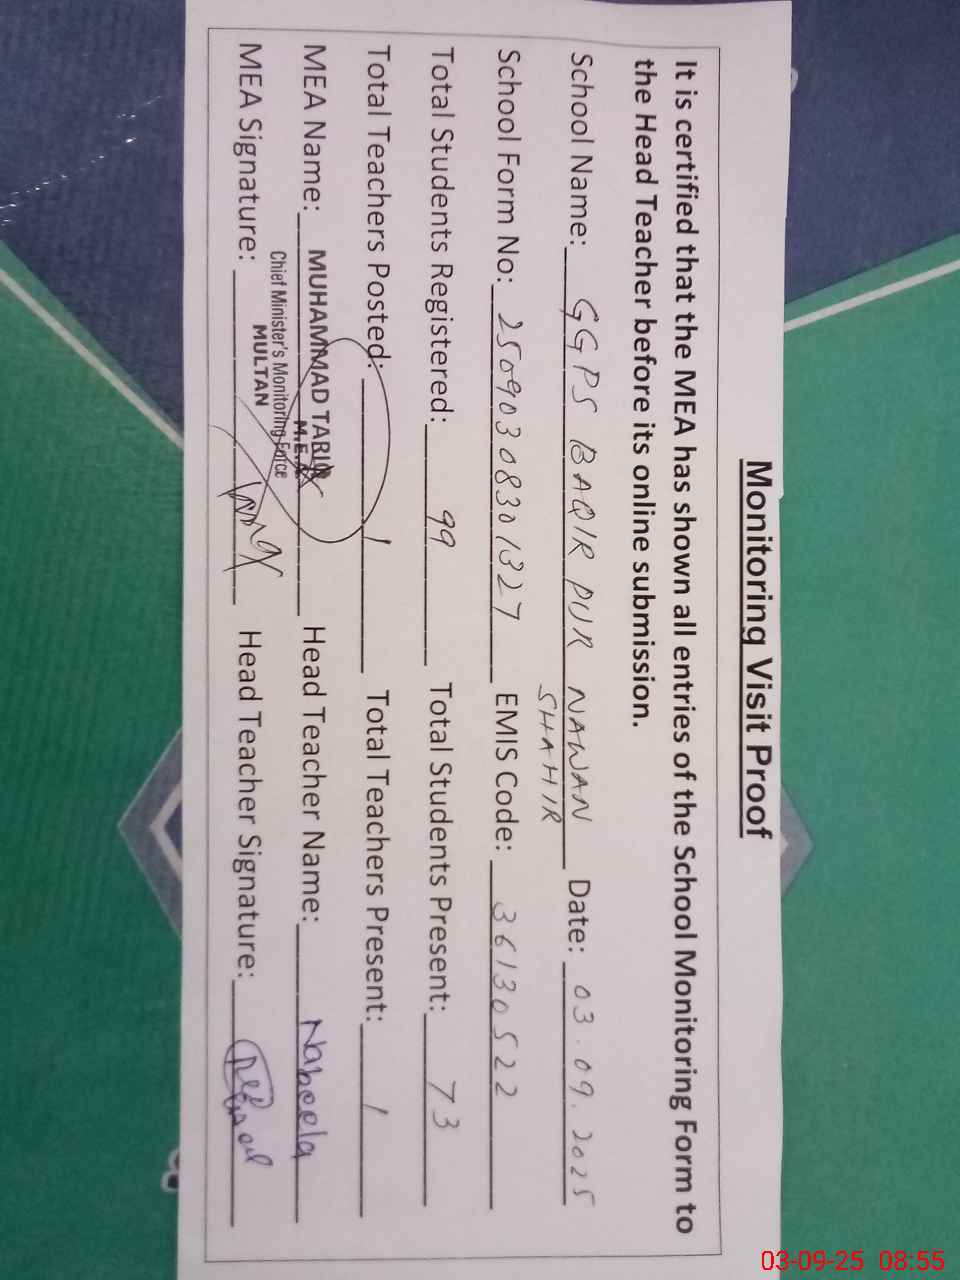 Monitoring Visit Proof
It is certified that the MEA has shown all entries of the School Monitoring Form to
the Head Teacher before its online submission.
School Name: GGPS BAQIR PUR NAWAN SHAHIR Date: 03.09.2025
School Form No: 25090308301327 EMIS Code: 36130522
Total Students Registered: 99 Total Students Present: 73
Total Teachers Posted: 1 Total Teachers Present: 1
MEA Name: MUHAMMAD TARIQ Head Teacher Name: Nabeela
M.E.A
Chief Minister's Monitoring Force
MULTAN
MEA Signature: Head Teacher Signature:
03-09-25 08:55